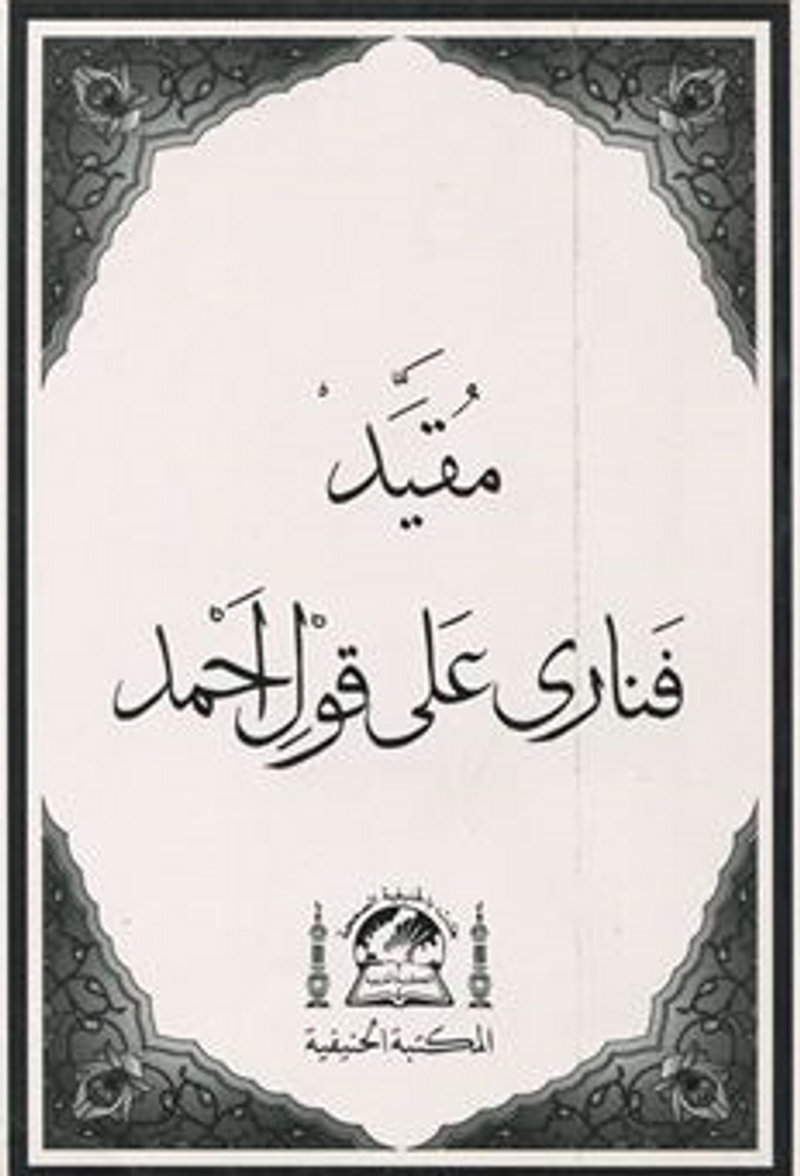 مُقَيَّدْ
فَنارى عَلى قَوْلِ اَحْمد
المكتبة الحنيفية